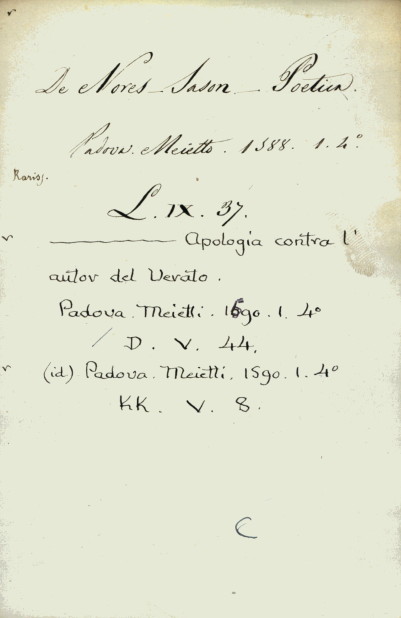 De Nores Jason - Poetica.
Padova. Meietto. 1588. 1. 4°.
Rariss.
L. IX. 37.
——— Apologia contra l'
autor del Verato.
Padova. Meietti. 1590. 1. 4°
D. V. 44.
(id.) Padova. Meietti. 1590. 1. 4°
KK. V. 8.
C